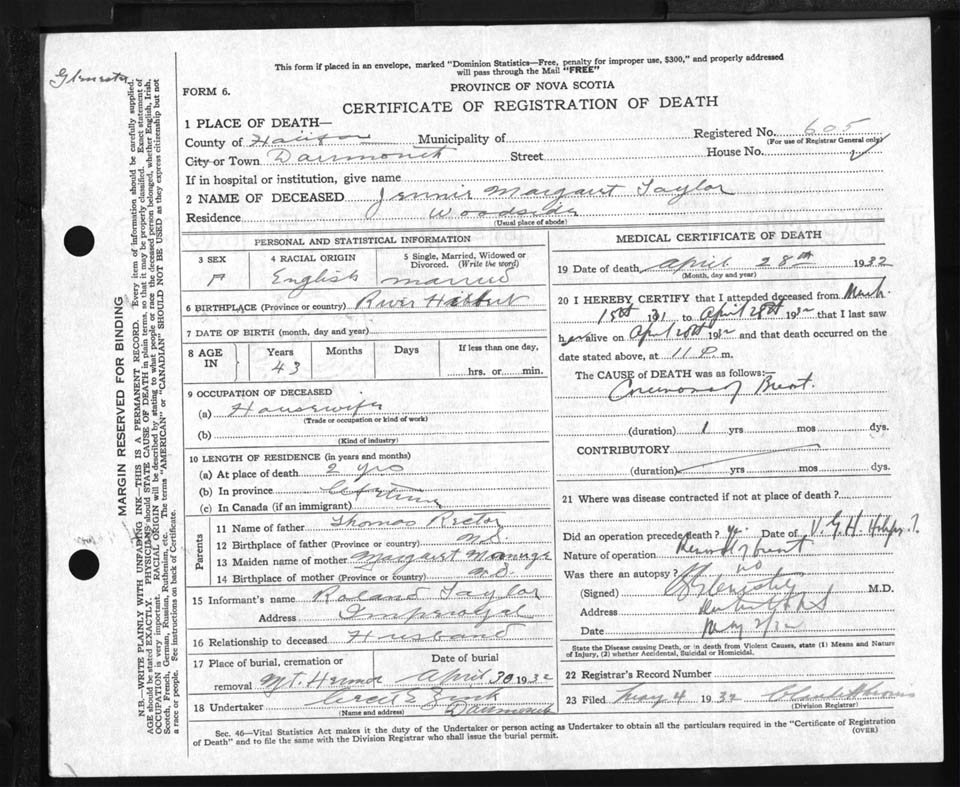 This form if placed in an envelope, marked "Dominion Statistics—Free, penalty for improper use, $300," and properly addressed
will pass through the Mail "FREE"
PROVINCE OF NOVA SCOTIA
FORM 6.
CERTIFICATE OF REGISTRATION OF DEATH
1 PLACE OF DEATH—
County of Halifax Municipality of Registered No. 605
(For use of Registrar General only)
City or Town Dartmouth Street House No.
If in hospital or institution, give name
2 NAME OF DECEASED Jennie Margaret Taylor
Residence Woodside
(Usual place of abode)
PERSONAL AND STATISTICAL INFORMATION
3 SEX 4 RACIAL ORIGIN 5 Single, Married, Widowed or
Divorced. (Write the word)
F English married
6 BIRTHPLACE (Province or country) River Hebert
7 DATE OF BIRTH (month, day and year)
8 AGE IN Years Months Days If less than one day,
43 hrs. or min.
9 OCCUPATION OF DECEASED
(a) Housewife
(Trade or occupation or kind of work)
(b)
(Kind of industry)
10 LENGTH OF RESIDENCE (in years and months)
(a) At place of death 2 yrs
(b) In province Lifetime
(c) In Canada (if an immigrant)
Parents
11 Name of father Thomas Rector
12 Birthplace of father (Province or country) N.S.
13 Maiden name of mother Margaret
14 Birthplace of mother (Province or country) N.S.
15 Informant's name Roland Taylor
Address Imperoyal
16 Relationship to deceased Husband
17 Place of burial, cremation or Date of burial
removal Mt. Hermon April 30 1932
18 Undertaker Dartmouth
(Name and address)
MEDICAL CERTIFICATE OF DEATH
19 Date of death April 28th 1932
(Month, day and year)
20 I HEREBY CERTIFY that I attended deceased from March
15th 31 to April 28th 1932 that I last saw
her alive on April 28th 1932 and that death occurred on the
date stated above, at 11 P m.
The CAUSE of DEATH was as follows:
Carcinoma of Breast.
(duration) 1 yrs mos dys.
CONTRIBUTORY
(duration) yrs mos dys.
21 Where was disease contracted if not at place of death?
Did an operation precede death? Yes. Date of V.G.H.
Nature of operation Removal of breast
Was there an autopsy? no
(Signed) M.D.
Address
Date May 2/32
State the Disease causing Death, or in death from Violent Causes, state (1) Means and Nature
of Injury, (2) whether Accidental, Suicidal or Homicidal.
22 Registrar's Record Number
23 Filed May 4 1932
(Division Registrar)
Sec. 46—Vital Statistics Act makes it the duty of the Undertaker or person acting as Undertaker to obtain all the particulars required in the "Certificate of Registration
of Death" and to file the same with the Division Registrar who shall issue the burial permit. (OVER)
MARGIN RESERVED FOR BINDING
N.B.—WRITE PLAINLY WITH UNFADING INK—THIS IS A PERMANENT RECORD. Every item of information should be carefully supplied.
AGE should be stated EXACTLY. PHYSICIANS should STATE CAUSE OF DEATH in plain terms, so that it may be properly classified. Exact statement of
OCCUPATION is very important. RACIAL ORIGIN will be described by stating to what people or race the deceased person belonged, whether English, Irish,
Scotch, French, German, Russian, Ruthenian, etc. The terms "AMERICAN" or "CANADIAN" SHOULD NOT BE USED as they express citizenship but not
a race or people. See instructions on back of Certificate.